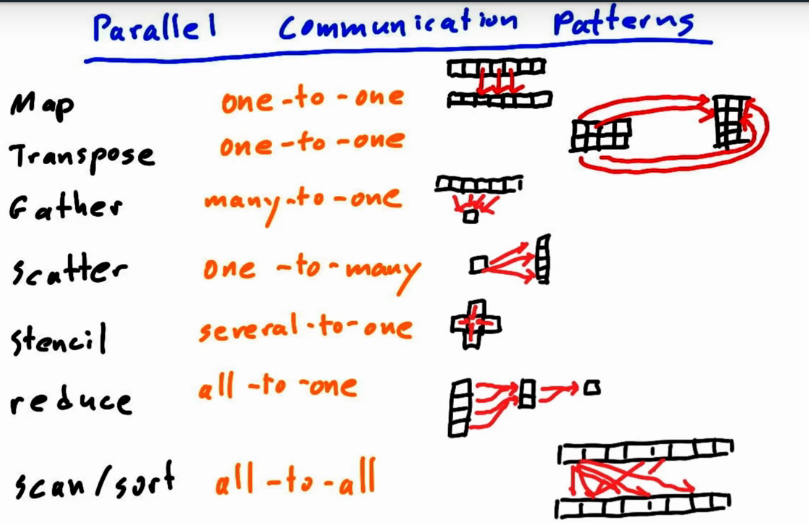 Parallel Communication Patterns
Map one-to-one
Transpose one-to-one
Gather many-to-one
Scatter one-to-many
Stencil several-to-one
reduce all-to-one
scan/sort all-to-all